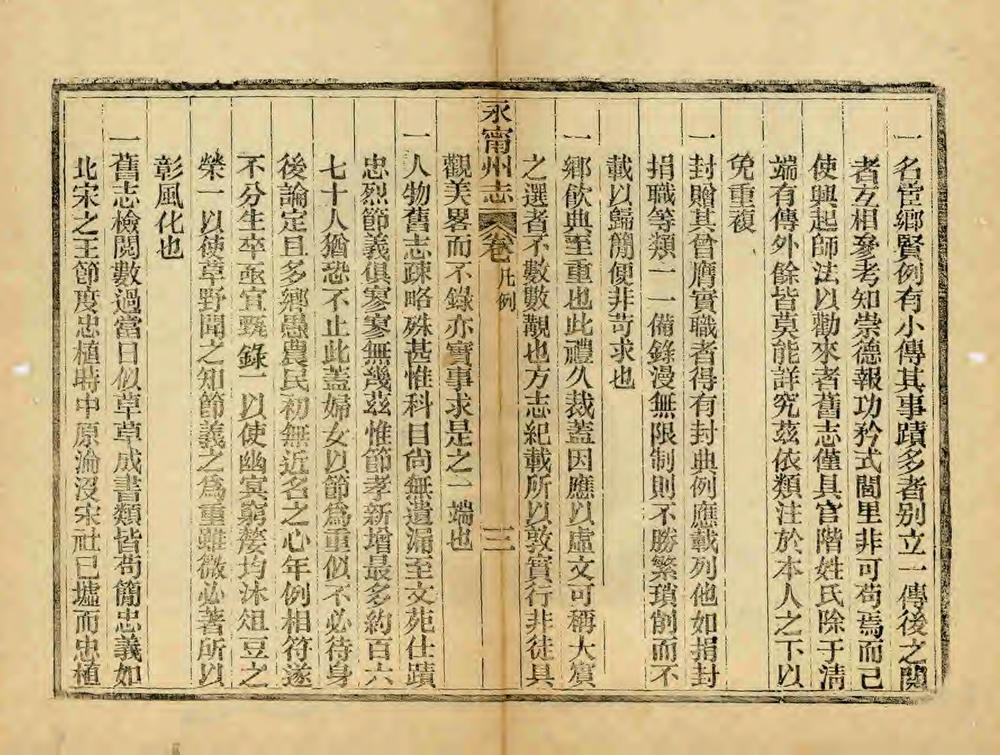 一名宦鄉賢例有小傳其事蹟多者别立一傳後之閱
者互相參考知崇德報功矜式閭里非可苟焉而已
使興起師法以勸來者舊志僅具官階姓氏除于清
端有傳外餘皆莫能詳究茲依類注於本人之下以
免重複
一封贈其曾膺實職者得有封典例應載列他如捐封
捐職等類一一備錄漫無限制則不勝繁瑣創而不
載以歸簡便非苛求也
一鄉飲典至重也此禮久裁蓋因應以虛文可稱大賓
之選者不數數觀也方志紀載所以敦實行非徒具
永甯州志
卷
凡例
三
觀美畧而不錄亦實事求是之一端也
一人物舊志疎略殊甚惟科目尚無遺漏至文苑仕蹟
忠烈節義俱寥寥無幾茲惟節孝新增最多約百六
七十人猶恐不止此蓋婦女以節爲重似不必待身
後論定且多鄉愚農民初無近名之心年例相符遂
不分生卒亟宜甄錄一以使幽冥窮嫠均沐俎豆之
榮一以使草野聞之知節義之爲重雖微必著所以
彰風化也
一舊志檢閱數過當日似草草成書類皆苟簡忠義如
北宋之王節度忠植時中原淪沒宋社已墟而忠植